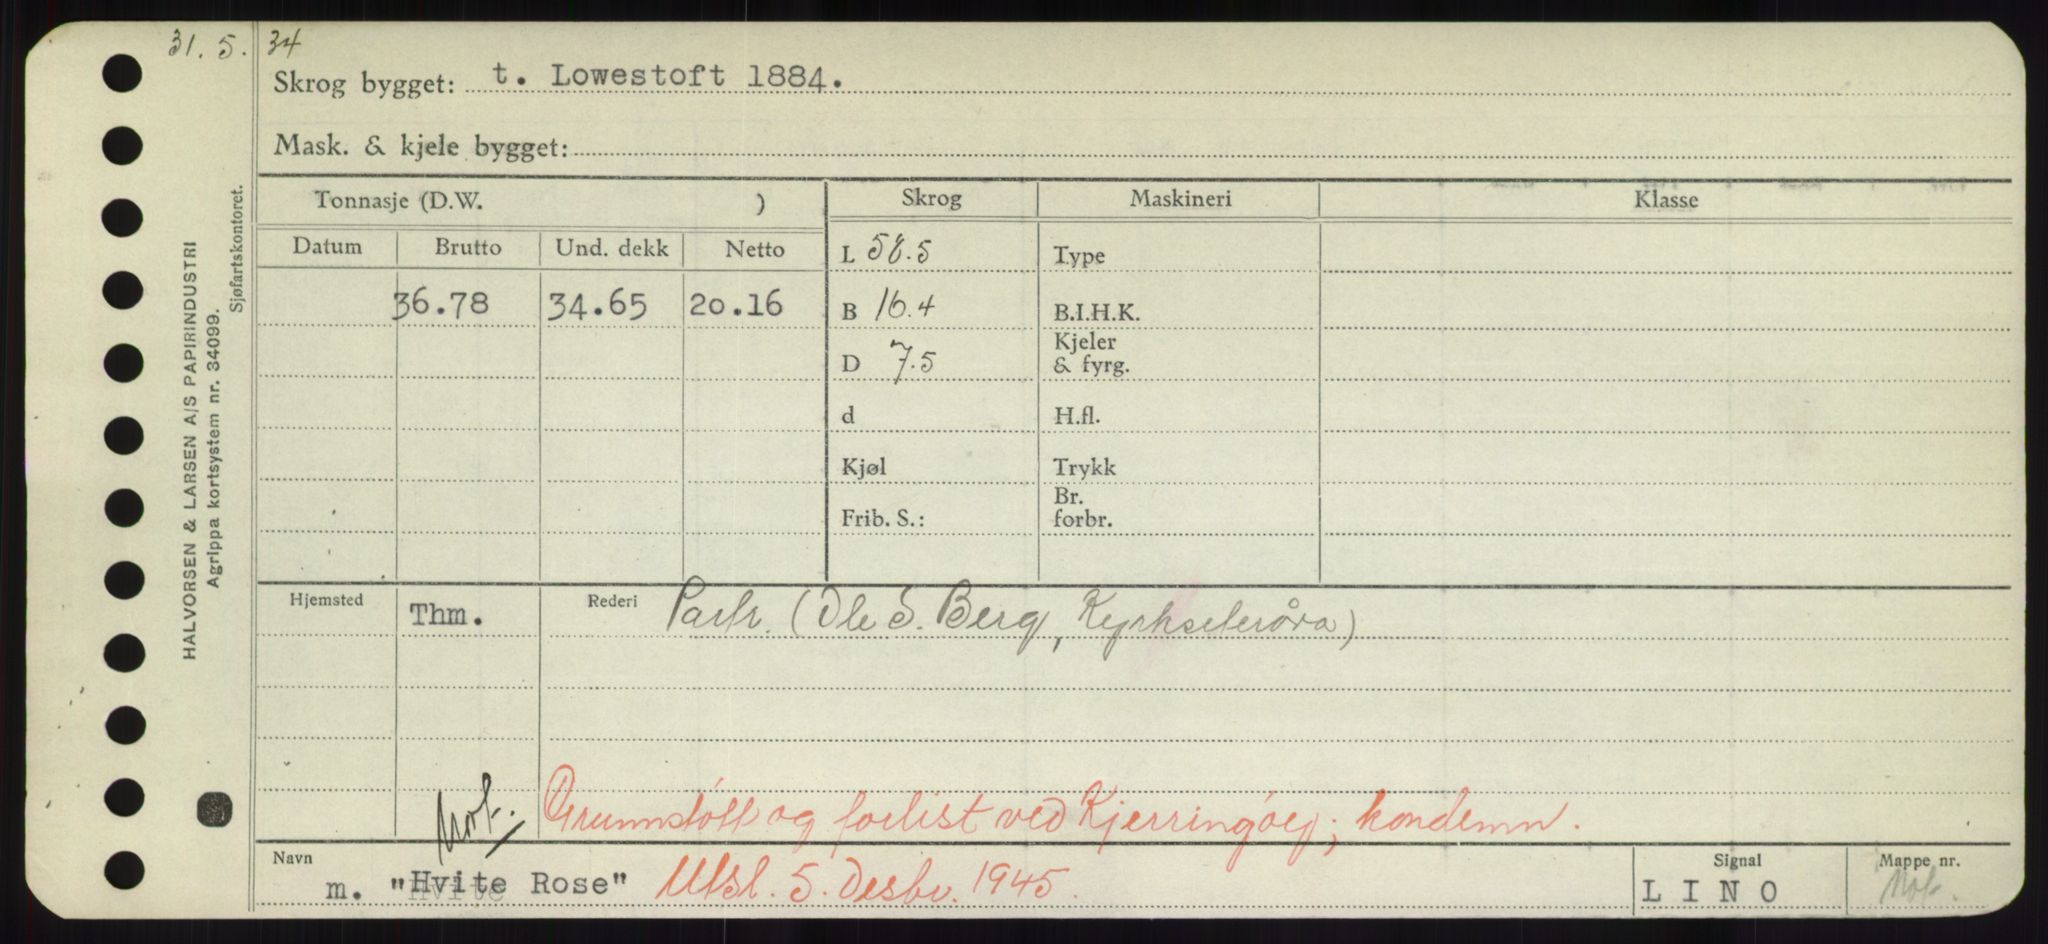 31. 5. 34
Skrog bygget: t. Lowestoft 1884.
Mask. & kjele bygget:
Tonnasje (D.W. ) Skrog Maskineri Klasse
Datum Brutto Und. dekk Netto
L 58.5 Type
36.78 34.65 20.16 B 16.4 B.I.H.K.
D 7.5 Kjeler & fyrg.
d H.fl.
Kjøl Trykk
Frib. S.: Br. forbr.
Hjemsted Thm. Rederi Partr. (Ole S. Berg, Kyrksæterøra)
Mot. Grunnstøtt og forlist ved Kjerringøy; kondemn.
Navn m. "Hvite Rose" Utsl. 5. Desbr. 1945. Signal L I N O Mappe nr. Mot.
HALVORSEN & LARSEN A/S PAPIRINDUSTRI
Agrippa kortsystem nr. 34099.
Sjøfartskontoret.